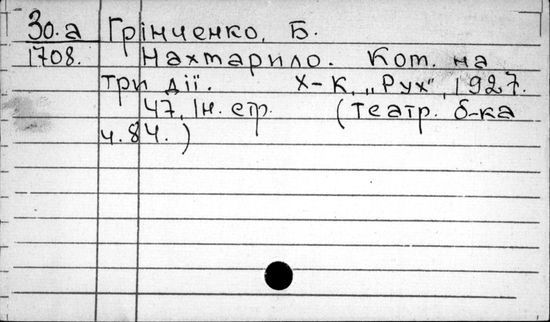 30.а Грінченко, Б.
1708. Нахтарило. Ком. на
три дії. Х-К, „Рух", 1927.
47, Ін. стр. (Театр. б-ка
ч. 84.)